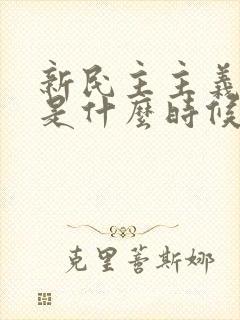 新民主主義
是什麼時候
克里蒼斯娜